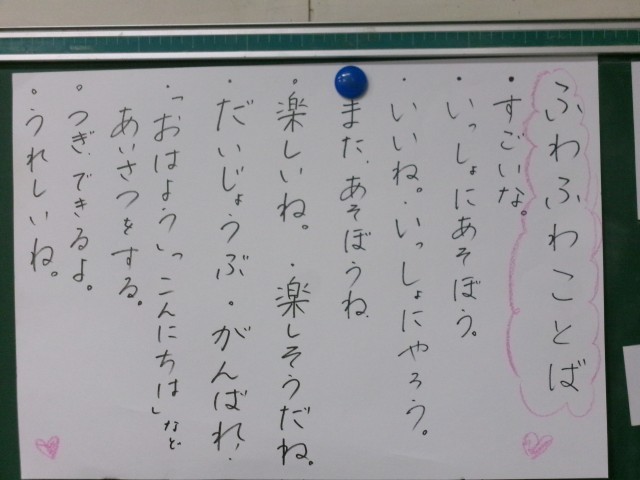 ふわふわことば
・すごいな。
・いっしょにあそぼう。
・いいね。・いっしょにやろう。
また、あそぼうね。
・楽しいね。・楽しそうだね。
・だいじょうぶ。がんばれ!
・「おはよう」「こんにちは」など
あいさつをする。
・つぎ、できるよ。
・うれしいね。